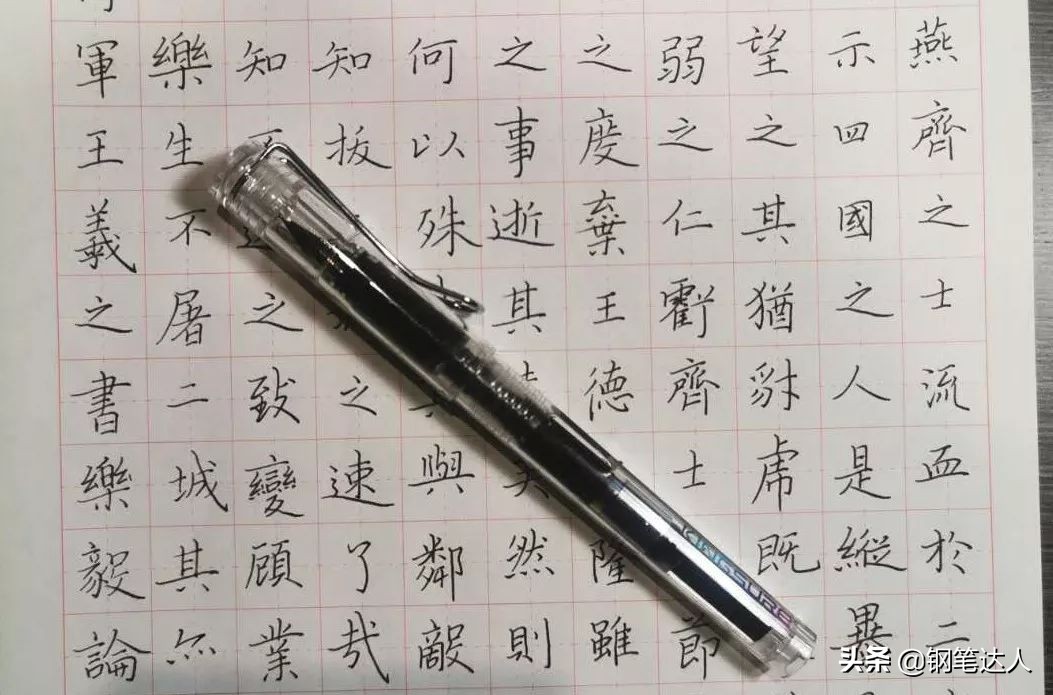 燕齊之士流血於二
示四國之人是縱暴
望之其猶豺虎既
弱之仁虧齊士節
之度棄王德隆雖
之事逝其矣然則
何以殊與鄰敵
知拔之速了哉
知之致變顧業
樂生不屠二城其亦
軍王羲之書樂毅論
头条 @钢笔达人